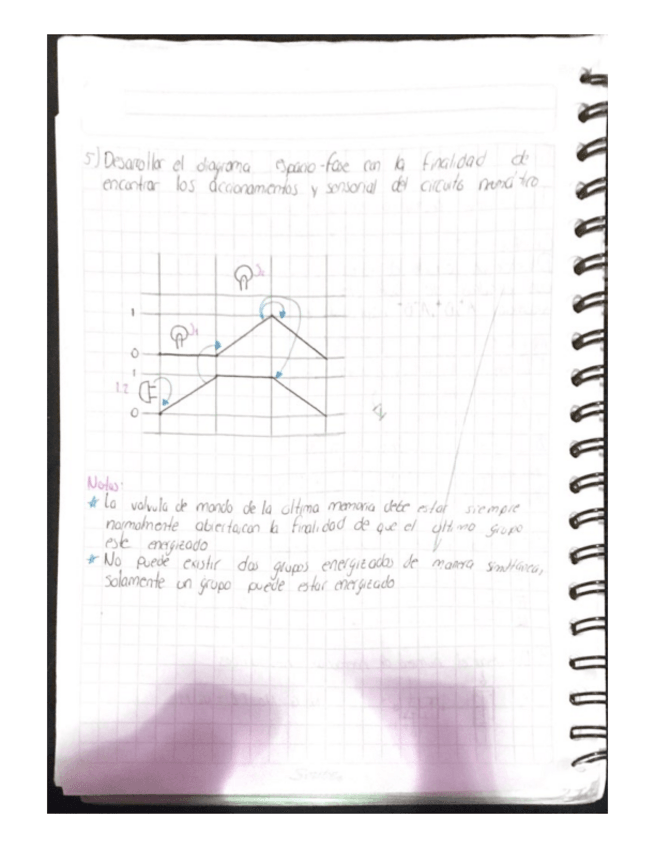 5) Desarrollar el diagrama espacio-fase con la finalidad de
encontrar los accionamientos y sensorial del circuito
1
0
1
1.2
0
Notas:
La valvula de mando de la ultima memoria debe estar siempre
normalmente abierta, con la finalidad de que el ultimo grupo
este energizado
No puede existir dos grupos energizados de manera simultánea,
solamente un grupo puede estar energizado